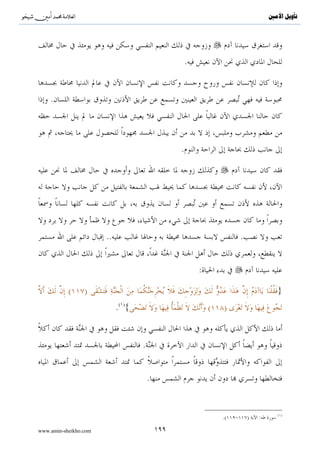 تأويل الأمين
العلّامة محمد أمين شيخو
وقد استغرق سيدنا آدم ﷺ وزوجه في ذلك النعيم النفسي وسكن فيه وهو يومئذ في حال مخالف
للحال المادي الذي نحن الآن نعيش فيه.
وإذا كان للإنسان نفس وروح وجسد وكانت نفس الإنسان الآن في عالم الدنيا محاطة بجسدها
محبوسة فيه فهي تُبصر عن طريق العينين وتسمع عن طريق الأذنين وتذوق بواسطة اللسان. وإذا
كان حالنا الجسدي الآن غالباً على الحال النفسي فلا يعيش هذا الإنسان ما لم ينل الجسد حظه
من مطعم ومشرب وملبس، إذ لا بد من أن يبذل الجسد مجهوداً للحصول على ما يحتاجه، ثم هو
إلى جانب ذلك بحاجة إلى الراحة والنوم.
فقد كان سيدنا آدم ﷺ وكذلك زوجه لما خلقه الله تعالى وأوجده في حال مخالف لما نحن عليه
الآن، لأن نفسه كانت محيطة بجسدها كما يحيط لهب الشمعة بالفتيل من كل جانب ولا حاجة له
والحالة هذه لأذن تسمع أو عين تُبصر أو لسان يذوق به، بل كانت نفسه كلها لساناً وسمعاً
وبصراً وما كان جسده يومئذ بحاجة إلى شيء من الأشياء، فلا جوع ولا ظمأ ولا حر ولا برد ولا
تعب ولا نصب. فالنفس لابسة جسدها محيطة به وحالها غالب عليه.. إقبال دائم على الله مستمر
لا ينقطع، ولعمري ذلك حال أهل الجنة في الجنّة غداً، قال تعالى مشيراً إلى ذلك الحال الذي كان
عليه سيدنا آدم ﷺ في بدء الحياة:
{فَقُلْنَا يَاآدَمُ إِنَّ هَذَا عَدُوٌّ لَكَ وَلِزَوْجِكَ فَلَا يُخْرِجَنَّكُمَا مِنَ الْجَنَّةِ فَتَشْقَى (١١٧) إِنَّ لَكَ أَلَّا
تَجُوعَ فِيهَا وَلَا تَعْرَى (١١٨) وَأَنَّكَ لَا تَظْمَأُ فِيهَا وَلَا تَضْحَى}(١).
أما ذلك الأكل الذي يأكله وهو في هذا الحال النفسي وإن شئت فقل وهو في الجنّة فقد كان أكلاً
ذوقياً وهو أيضاً أكل الإنسان في الدار الآخرة في الجنّة. فالنفس المحيطة بالجسد تمتد أشعتها يومئذ
إلى الفواكه والأثمار فتتذوَّقها ذوقاً مستمراً متواصلاً كما تمتد أشعة الشمس إلى أعماق المياه
فتخالطها وتسري بها دون أن يدنو جرم الشمس منها.
(١) سورة طه: الآية (١١٧-١١٩).
www.amin-sheikho.com
١٩٩